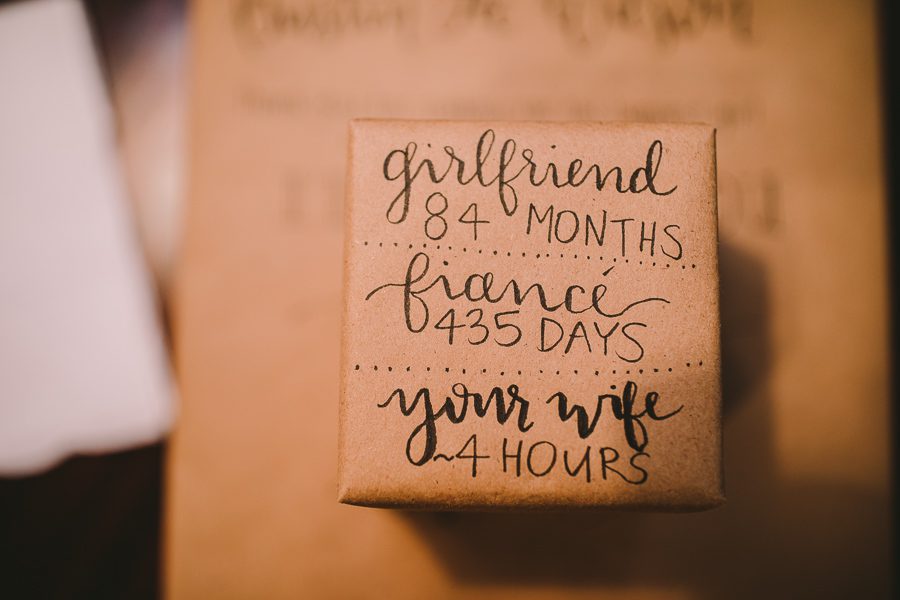 girlfriend
84 MONTHS
fiancé
435 DAYS
your wife
~4 HOURS